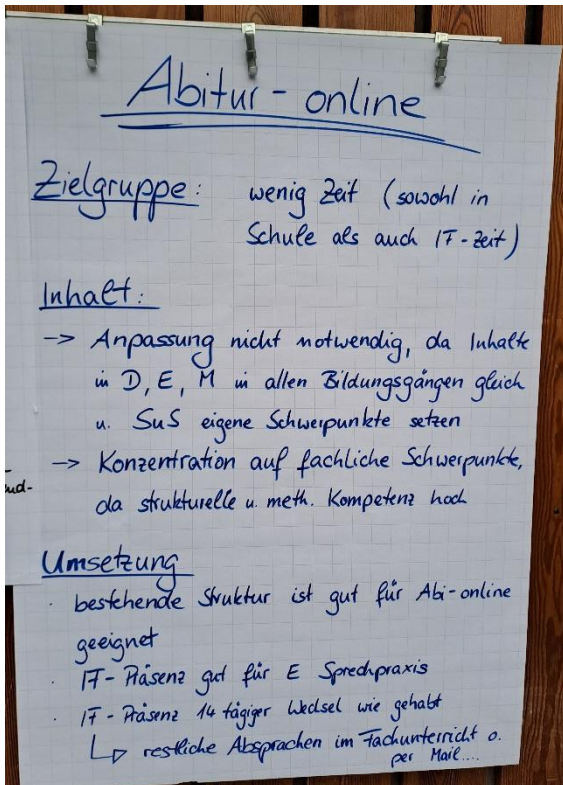 Abitur - online
Zielgruppe: wenig Zeit (sowohl in
Schule als auch IF-Zeit)
Inhalt:
-> Anpassung nicht notwendig, da Inhalte
in D, E, M in allen Bildungsgängen gleich
u. SuS eigene Schwerpunkte setzen
-> Konzentration auf fachliche Schwerpunkte,
da strukturelle u. meth. Kompetenz hoch
Umsetzung
· bestehende Struktur ist gut für Abi-online
geeignet
· IF-Präsenz gut für E Sprechpraxis
· IF-Präsenz 14 tägiger Wechsel wie gehabt
↳ restliche Absprachen im Fachunterricht o.
per Mail....